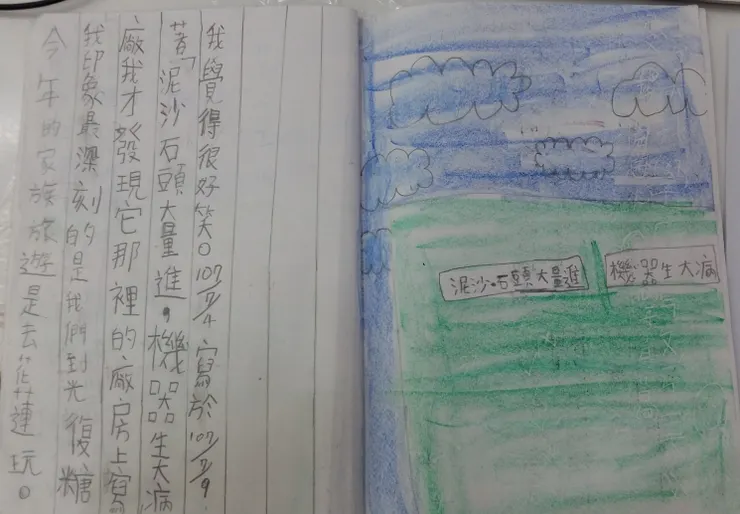 今年的家族旅遊是去花蓮玩。
我印象最深刻的是我們到光復糖
廠我才發現它那裡的廠房上寫
著「泥沙石頭大量進，機器生大病
我覺得很好笑。107/7/4 寫於107/7/9
泥沙石頭大量進
機器生大病